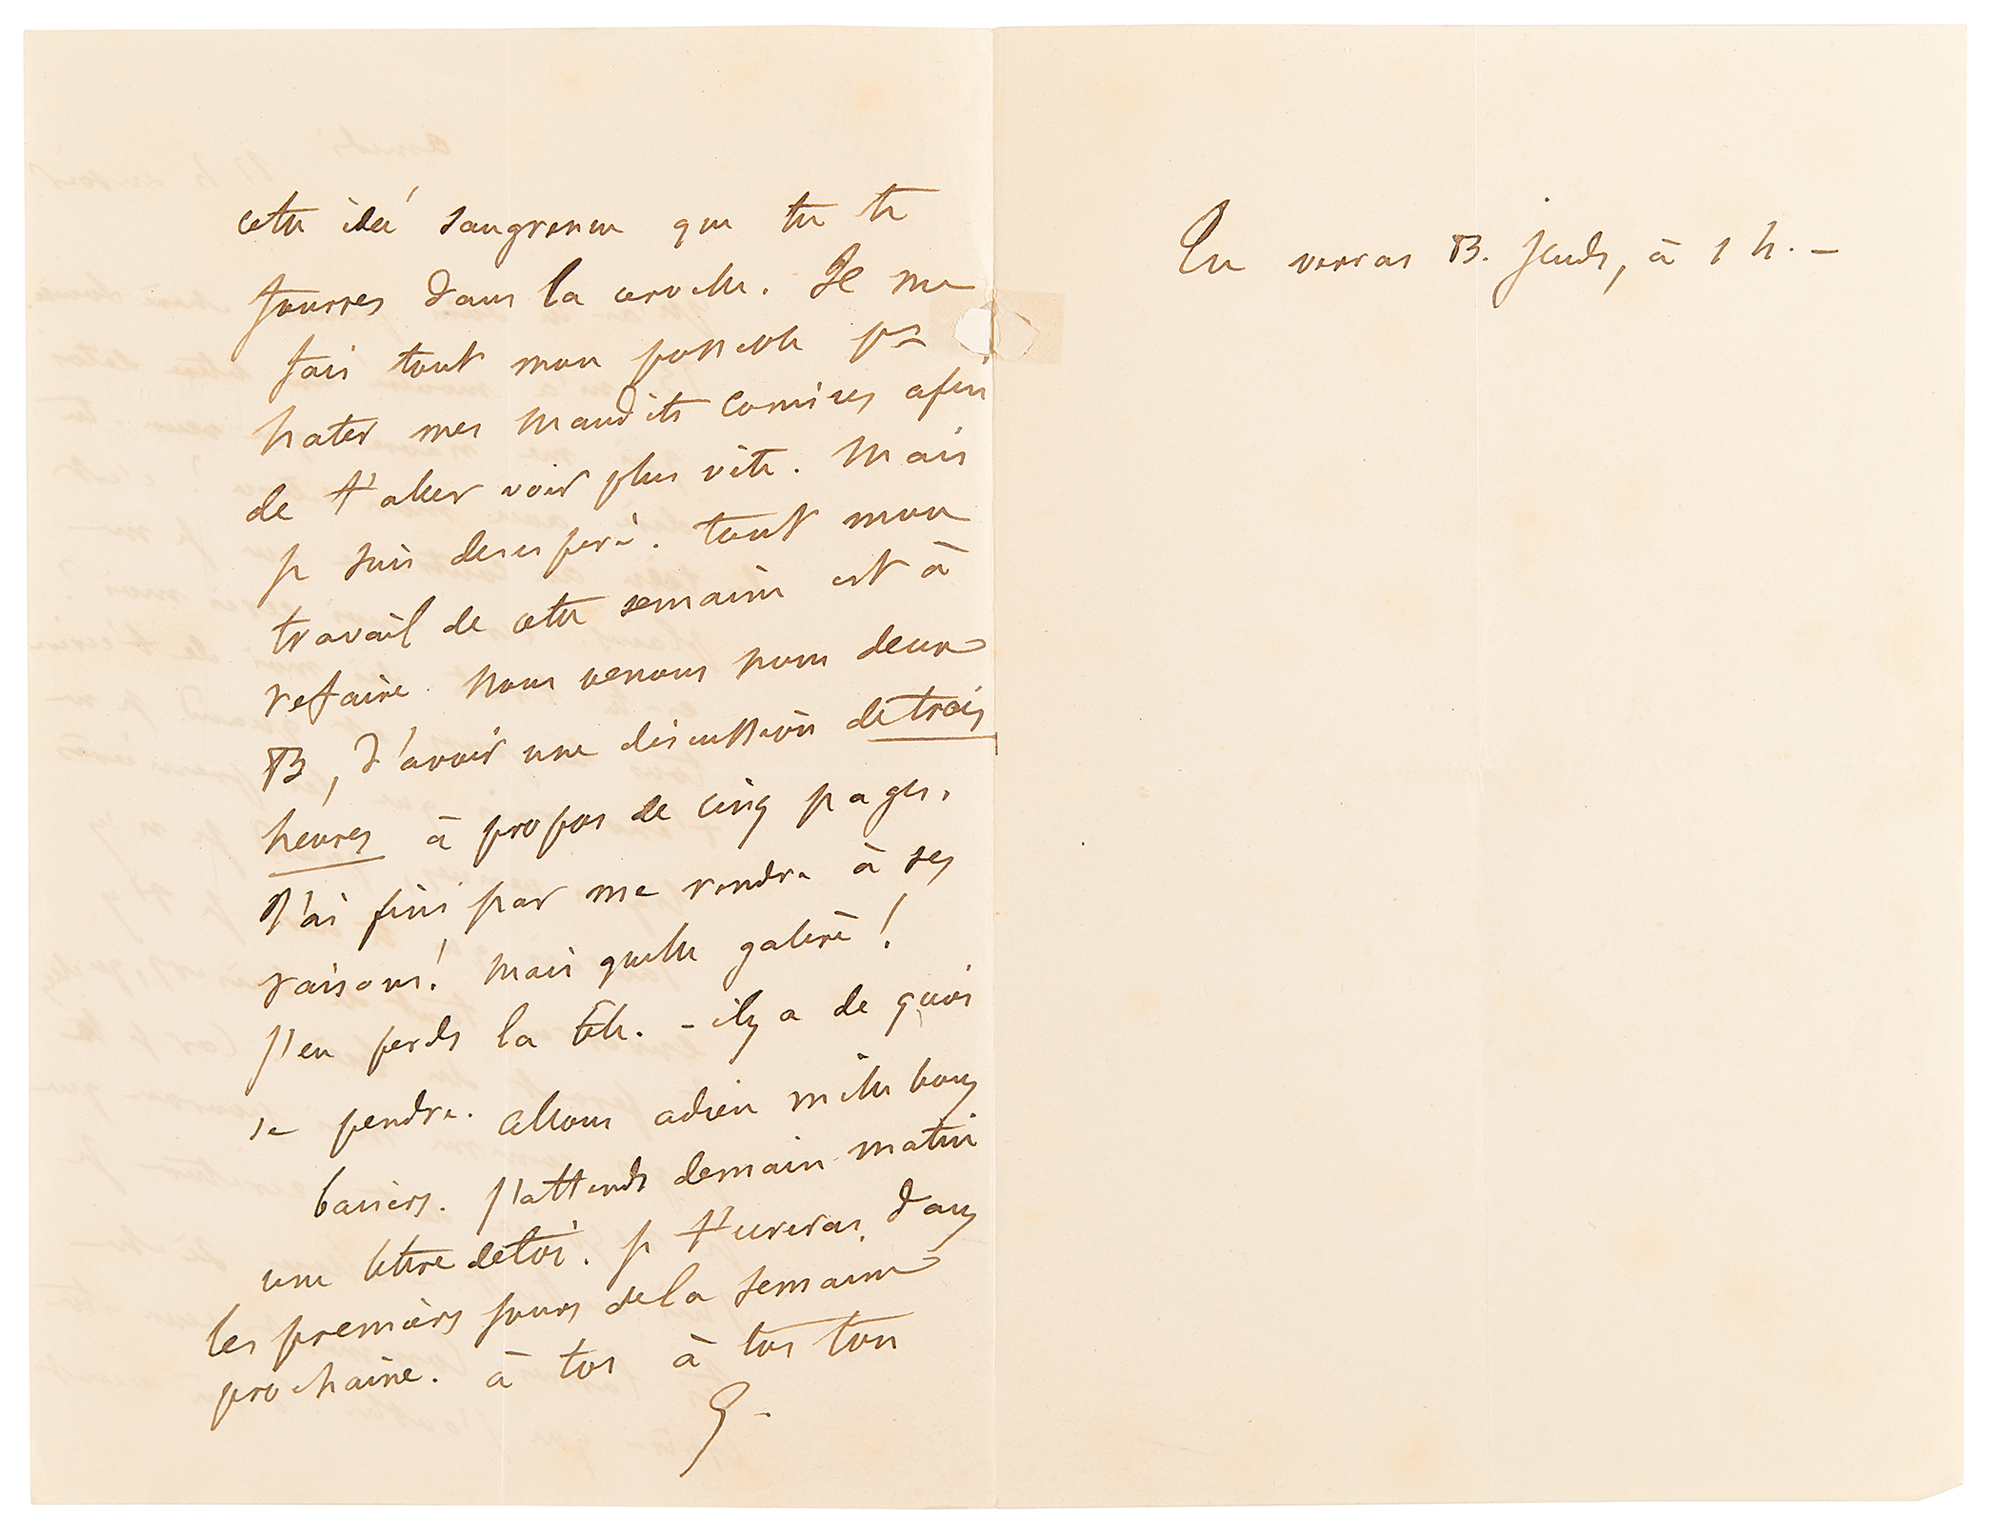 cette idée saugrenue que tu te
fourres dans la cervelle. Je me
fais tout mon possible pr
hater mes maudits comices afin
de t'aller voir plus vite. Mais
je suis desespéré. tout mon
travail de cette semaine est à
refaire. Nous venons nous deux
B, d'avoir une discussion de trois
heures à propos de cinq pages.
J'ai fini par me rendre à ses
raisons! Mais quelle galère!
J'en perds la tête. – il y a de quoi
se pendre. allons adieu mille bons
baisers. J'attends demain matin
une lettre de toi. je t'ecrirai dans
les premiers jours de la semaine
prochaine. à toi à toi ton
G –
Tu verras B. Jeudi, à 1 h. –